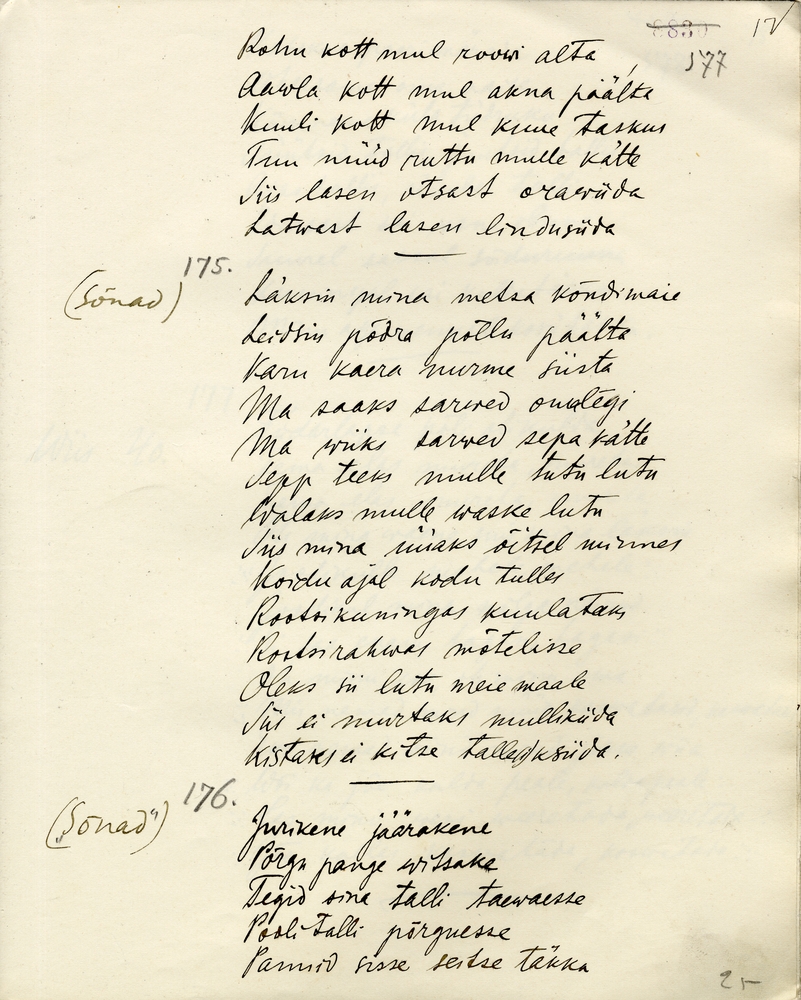 8830 17
577
Rohu kott mul roowi alta,
Aawla kott mul akna päälta
Kuuli kott mul kuue taskus
Too nüüd ruttu mulle kätte
Siis lasen otsast orawiida
Latwast lasen lindusiida
175.
(Sõnad) Läksin mina metsa kõndimaie
Leidsin põdra põllu päälta
Karu kaera nurme siista
Ma saaks sarwed omalegi
Ma wiiks sarwed sepa kätte
Sepp teeks mulle tutu lutu
Walaks mulle waske lutu
Siis mina üiaks õitsel minnes
Koidu ajal kodu tulles
Rootsikuningas kuulataks
Rootsirahwas mõtelisse
Oleks sii lutu meie maale
Siis ei murtaks mullikiida
Kistaks ei kitse talleksiida.
176.
(„Sõnad") Jurikene jäärakene
Põrgu pange witsake
Tegid sina talli taewaesse
Pooli talli põrguesse
Pannid sisse seitse täkka
25